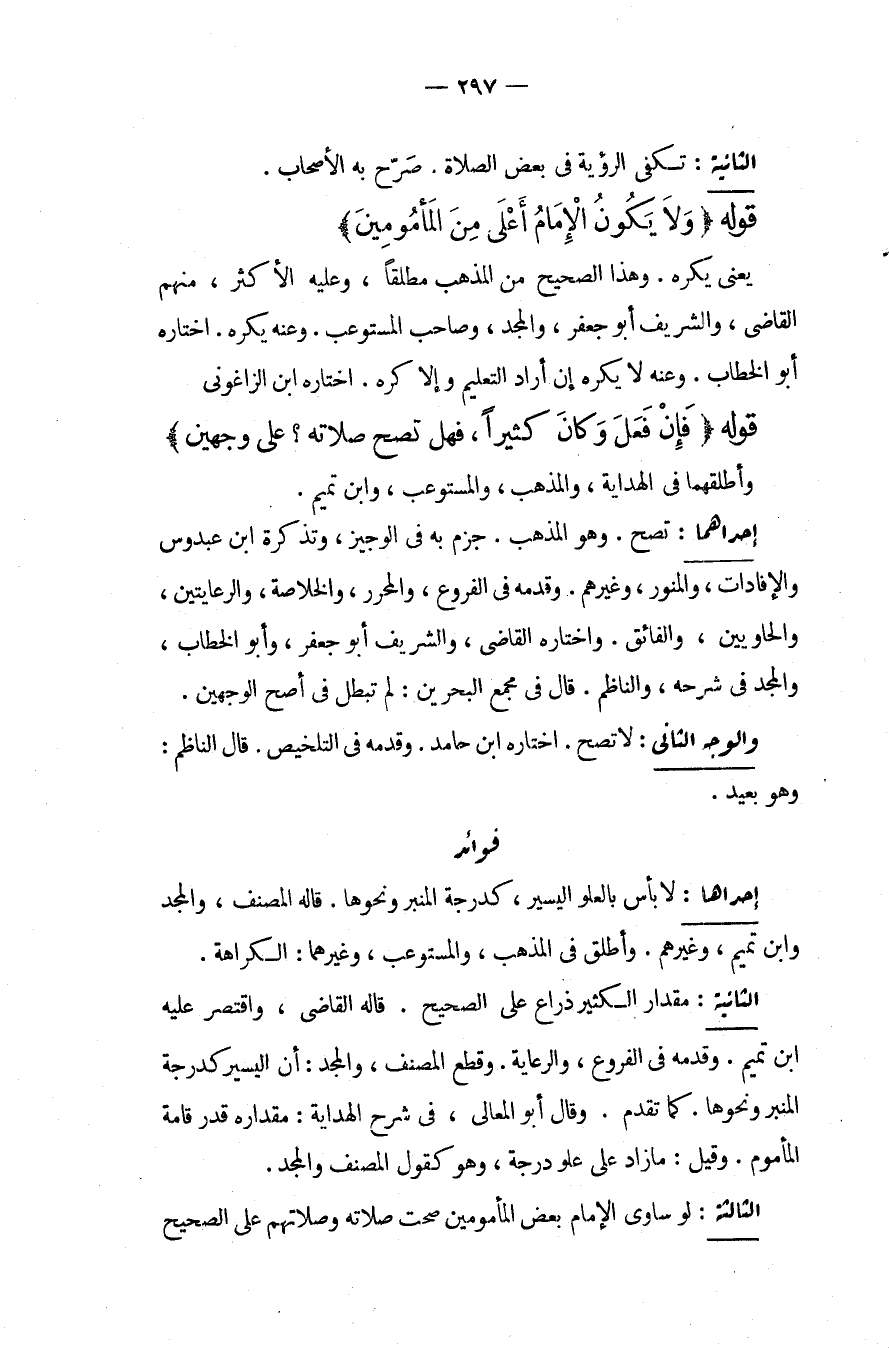 — ٢٩٧ —
الثانية : تـكفى الرؤية فى بعض الصلاة . صَرّح به الأصحاب .
قوله ﴿ وَلاَ يَـكُونُ الْإِمَامُ أَعْلَى مِنَ الْمَأْمُومِينَ ﴾
يعنى يكره . وهذا الصحيح من المذهب مطلقاً ، وعليه الأكثر ، منهم
القاضى ، والشريف أبو جعفر ، والمجد ، وصاحب المستوعب . وعنه يكره . اختاره
أبو الخطاب . وعنه لا يكره إن أراد التعليم وإلا كره . اختاره ابن الزاغونى
قوله ﴿ فَإِنْ فَعَلَ وَكانَ كثيراً ، فهل تصح صلاته ؟ على وجهين ﴾
وأطلقهما فى الهداية ، والمذهب ، والمستوعب ، وابن تميم .
إحداهما : تصح . وهو المذهب . جزم به فى الوجيز ، وتذكرة ابن عبدوس
والإفادات ، والمنور ، وغيرهم . وقدمه فى الفروع ، والمحرر ، والخلاصة ، والرعايتين ،
والحاويين ، والفائق . واختاره القاضى ، والشريف أبو جعفر ، وأبو الخطاب ،
والمجد فى شرحه ، والناظم . قال فى مجمع البحرين : لم تبطل فى أصح الوجهين .
والوجه الثانى : لاتصح . اختاره ابن حامد . وقدمه فى التلخيص . قال الناظم :
وهو بعيد .
فوائد
إحداها : لابأس بالعلو اليسير ، كدرجة المنبر ونحوها . قاله المصنف ، والمجد
وابن تميم ، وغيرهم . وأطلق فى المذهب ، والمستوعب ، وغيرهما : الـكراهة .
الثانية : مقدار الـكثير ذراع على الصحيح . قاله القاضى ، واقتصر عليه
ابن تميم . وقدمه فى الفروع ، والرعاية . وقطع المصنف ، والمجد : أن اليسير كدرجة
المنبر ونحوها . كما تقدم . وقال أبو المعالى ، فى شرح الهداية : مقداره قدر قامة
المأموم . وقيل : مازاد على علو درجة ، وهو كقول المصنف والمجد .
الثالثة : لو ساوى الإمام بعض المأمومين صحت صلاته وصلاتهم على الصحيح